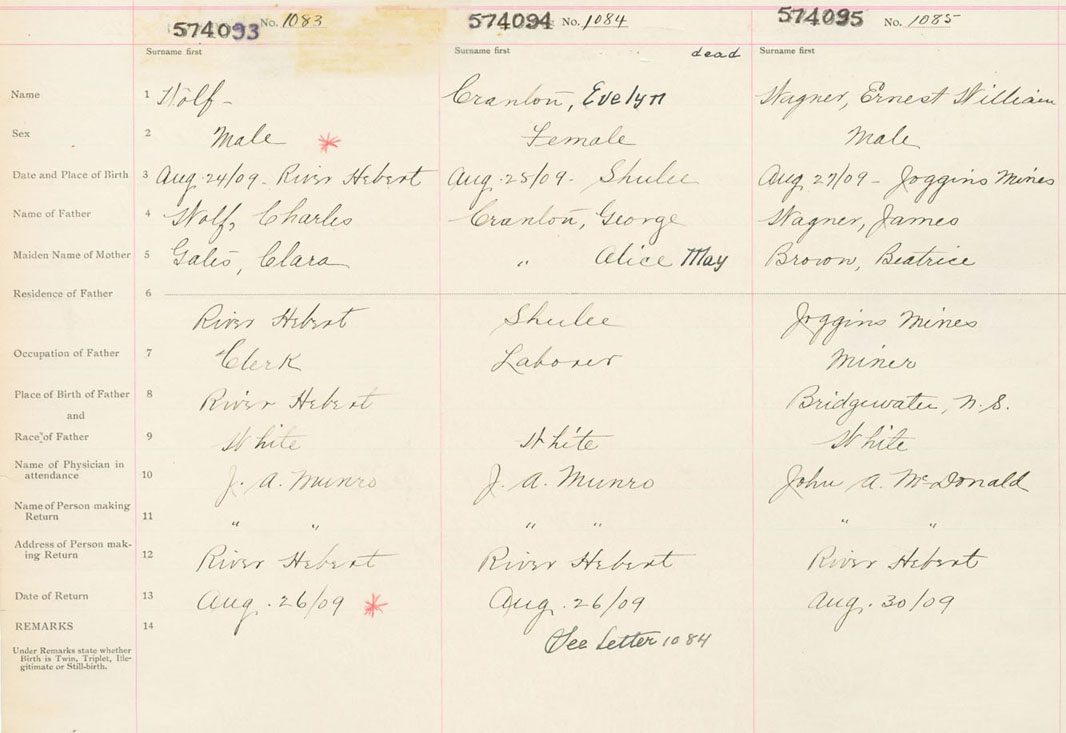 574093 No. 1083 574094 No. 1084 574095 No. 1085
Surname first Surname first dead Surname first
Name 1 Wolf - Cranton, Evelyn Wagner, Ernest William
Sex 2 Male Female Male
Date and Place of Birth 3 Aug. 24/09 - River Hebert Aug. 25/09 - Shulee Aug 27/09 - Joggins Mines
Name of Father 4 Wolf, Charles Cranton, George Wagner, James
Maiden Name of Mother 5 Clara " Alice May Brown, Beatrice
Residence of Father 6
River Hebert Shulee Joggins Mines
Occupation of Father 7 Clerk Laborer Miner
Place of Birth of Father 8 River Hebert Bridgewater, N.S.
and
Race of Father 9 White White White
Name of Physician in
attendance 10 J. A. Munro J. A. Munro John A. McDonald
Name of Person making
Return 11 " " " " " "
Address of Person mak-
ing Return 12 River Hebert River Hebert River Hebert
Date of Return 13 Aug. 26/09 Aug. 26/09 Aug. 30/09
REMARKS 14 See Letter 1084
Under Remarks state whether
Birth is Twin, Triplet, Ille-
gitimate or Still-birth.